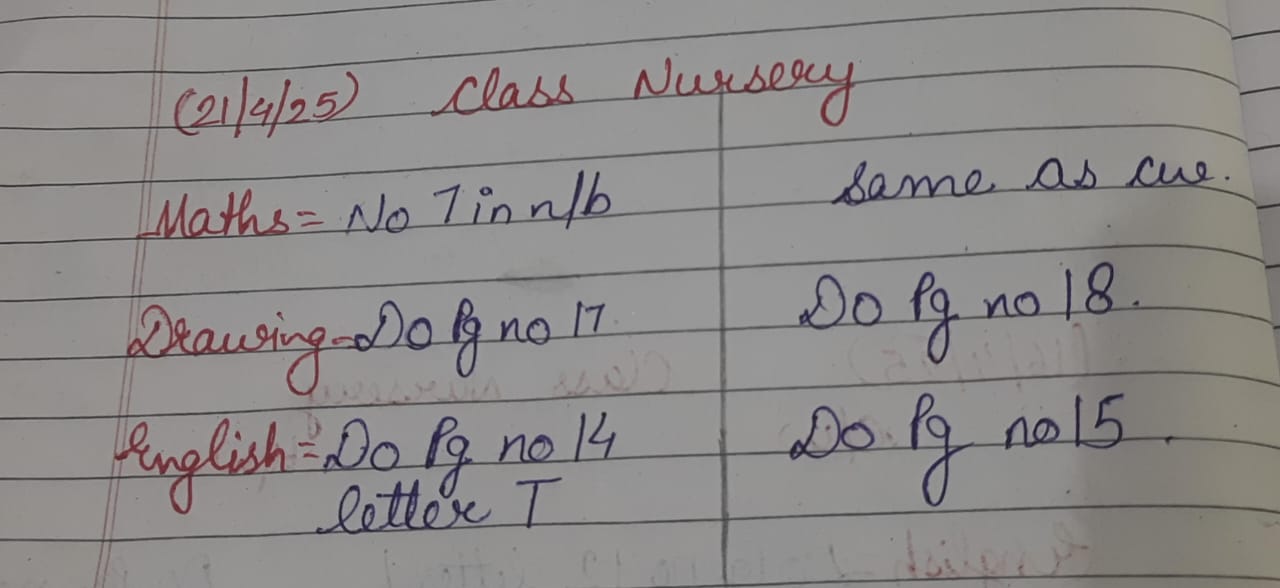 (21/4/25) Class Nursery
Maths = No 7 in n/b
same as cw.
Drawing - Do Pg no 17
Do Pg no 18.
English = Do Pg no 14
letter T
Do Pg no 15.